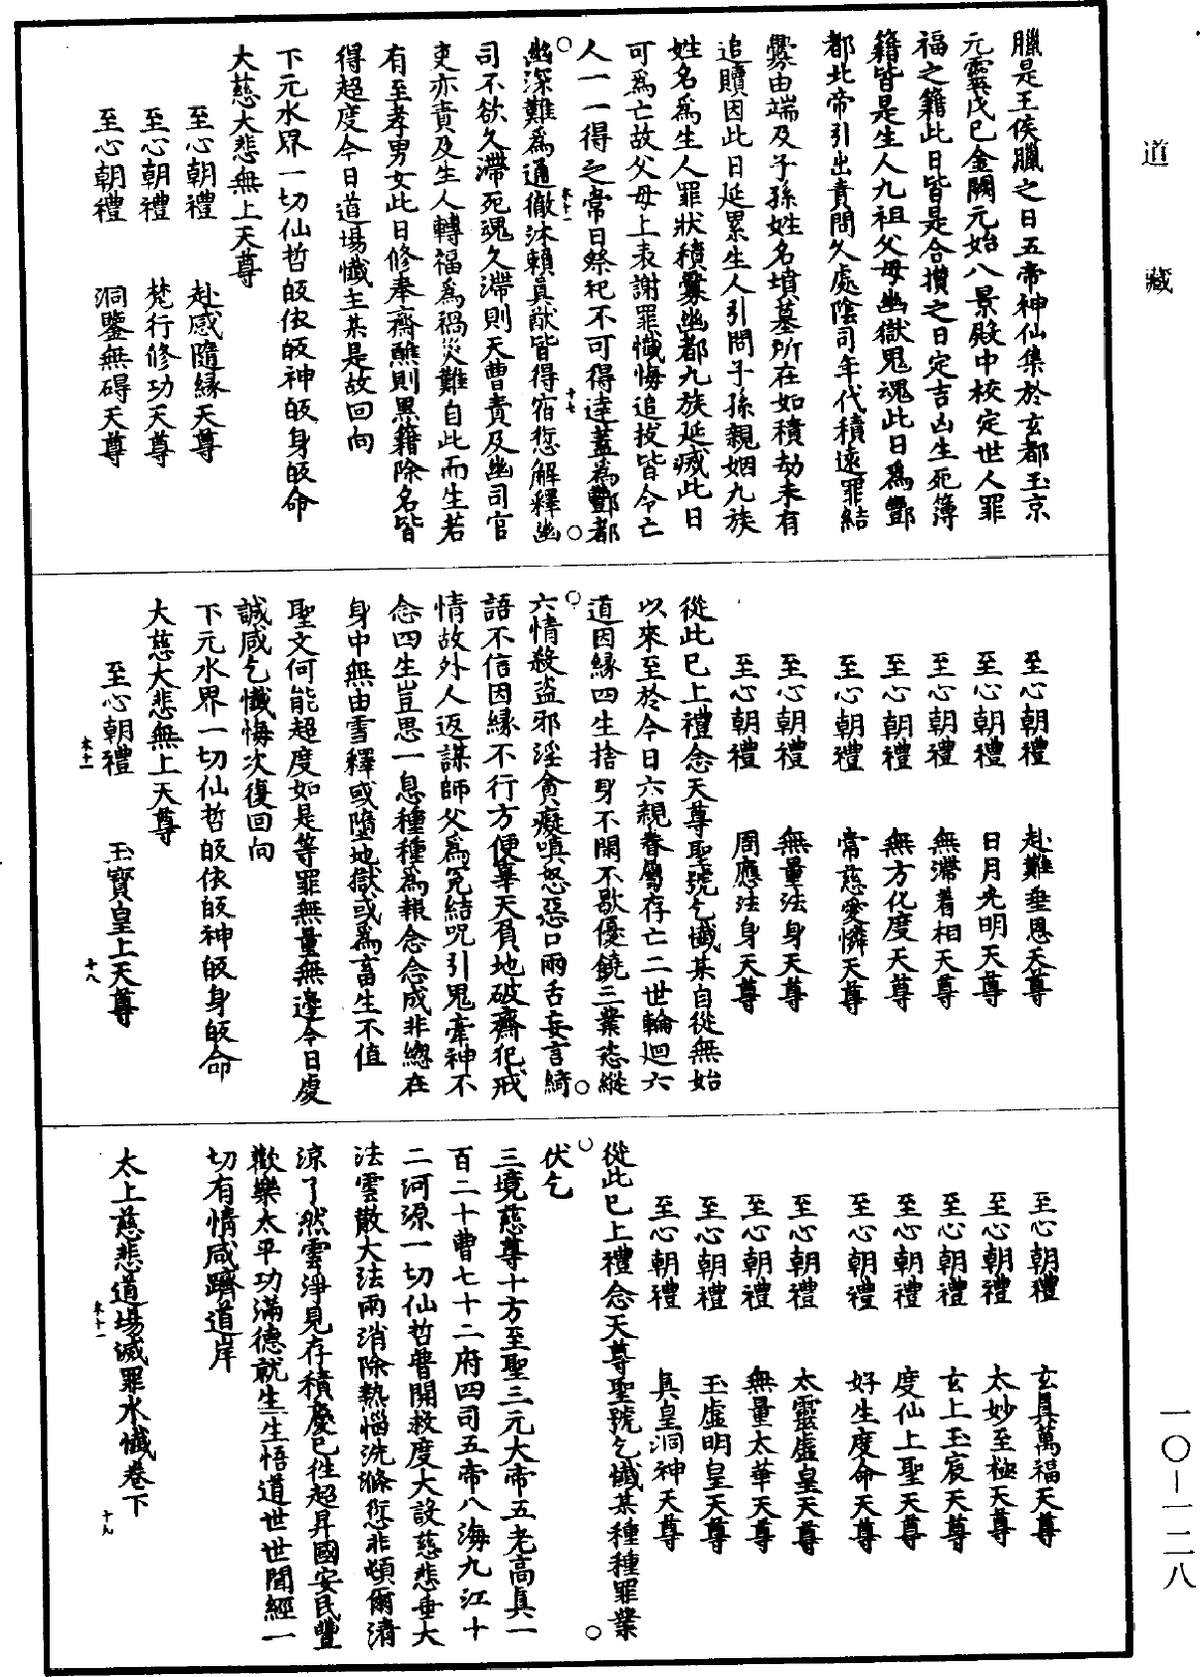 道藏
臘是王侯臘之日五帝神仙集於玄都玉京
元靈戊巳金闕元始八景殿中校定世人罪
福之籍此日皆是合攢之日定吉凶生死簿
籍皆是生人九祖父母幽獄鬼魂此日為酆
都北帝引出責問久處陰司年代積遠罪結
釁由端及子孫姓名墳墓所在如積劫未有
追贖因此日延累生人引問子孫親姻九族
姓名為生人罪狀積釁幽都九族延滅此日
可為亡故父母上表謝罪懺悔追拔皆令亡
人一一得之常日祭祀不可得達蓋為酆都
幽深難為通徹沐賴真猷皆得宿愆解釋幽
司不欲久滯死魂久滯則天曹責及幽司官
吏亦責及生人轉福為禍災難自此而生若
有至孝男女此日修奉齋醮則黑籍除名皆
得超度今日道場懺主某是故回向
下元水界一切仙哲皈依皈神皈身皈命
大慈大悲無上天尊
至心朝禮 赴感隨緣天尊
至心朝禮 梵行修功天尊
至心朝禮 洞鑒無碍天尊
至心朝禮 赴難垂恩天尊
至心朝禮 日月光明天尊
至心朝禮 無滯着相天尊
至心朝禮 無方化度天尊
至心朝禮 常慈愛憐天尊
至心朝禮 無量法身天尊
至心朝禮 周應法身天尊
從此巳上禮念天尊聖號乞懺某自從無始
以來至於今日六親眷屬存亡二世輪迴六
道因緣四生捨身不閑不歇優饒三業恣縱
六情殺盜邪淫貪癡嗔怒惡口兩舌妄言綺
語不信因緣不行方便辜天負地破齋犯戒
情故外人返謀師父為冤結呪引鬼牽神不
念四生豈思一息種種為報念念成非緫在
身中無由雪釋或墮地獄或為畜生不值
聖文何能超度如是等罪無量無邊今日虔
誠咸乞懺悔次復回向
下元水界一切仙哲皈依皈神皈身皈命
大慈大悲無上天尊
至心朝禮 玉寶皇上天尊
十八
至心朝禮 玄真萬福天尊
至心朝禮 太妙至極天尊
至心朝禮 玄上玉宸天尊
至心朝禮 度仙上聖天尊
至心朝禮 好生度命天尊
至心朝禮 太靈虛皇天尊
至心朝禮 無量太華天尊
至心朝禮 玉虛明皇天尊
至心朝禮 真皇洞神天尊
從此巳上禮念天尊聖號乞懺某種種罪業
伏乞
三境慈尊十方至聖三元大帝五老高真一
百二十曹七十二府四司五帝八海九江十
二河源一切仙哲普開救度大設慈悲垂大
法雲散大法雨消除熱惱洗滌愆非頓爾清
涼了然雲淨見存積慶已往超昇國安民豐
歡樂太平功滿德就生生悟道世世聞經一
切有情咸躋道岸
太上慈悲道場滅罪水懺卷下
十九
一〇—一二八